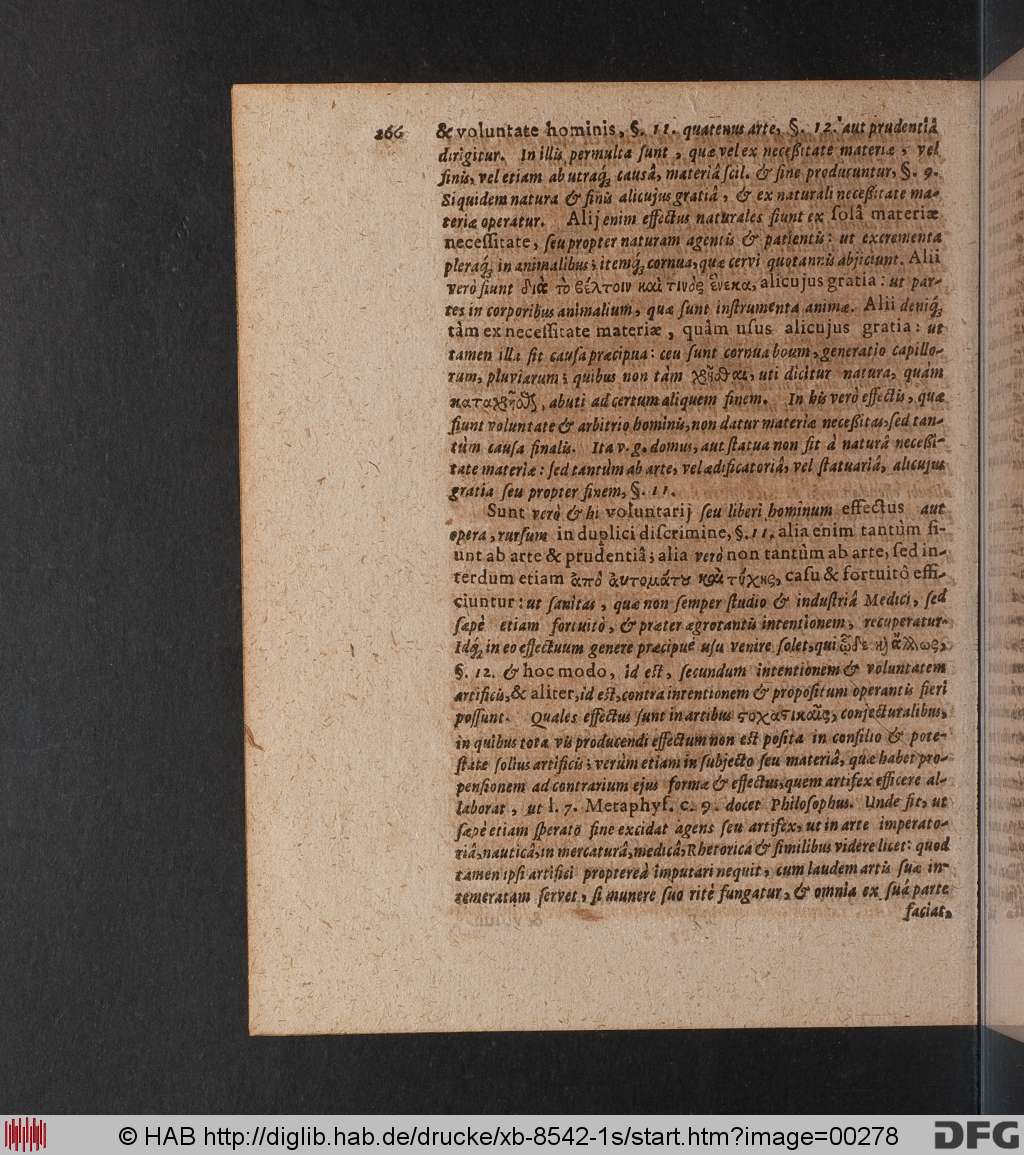 266 & voluntate hominis, §. 11. quatenus arte, §. 12. aut prudentiâ
dirigitur. In illis permulta ſunt, quæ vel ex neceßitate materiæ, vel
finis, vel etiam ab utraq́; causâ, materiâ ſcil. & fine producuntur, §. 9.
Siquidem natura & finis alicujus gratiâ, & ex naturali neceßitate ma-
teriæ operatur. Alij enim effectus naturales fiunt ex ſolâ materiæ
neceſſitate, ſeu propter naturam agentis & patientis: ut excrementa
pleraq́; in animalibus; itemq́; cornua, quæ cervi quotannis abjiciunt. Alii
verò fiunt διὰ τὸ βέλτοιν καὶ τινὸς ἕνεκα, alicujus gratia: ut par-
tes in corporibus animalium, quæ ſunt inſtrumenta animæ. Alii deniq́;
tàm ex neceſſitate materiæ, quàm uſus alicujus gratia: ut
tamen illa ſit cauſa præcipua: ceu ſunt cornua boum, generatio capillo-
rum, pluviarum; quibus non tàm χρῆσθαι, uti dicitur natura, quàm
καταχρῆσθ, abuti ad certum aliquem finem. In his verò effectis, quæ
fiunt voluntate & arbitrio hominis, non datur materiæ neceßitas, ſed tan-
tùm cauſa finalis. Ita v. g. domus, aut ſtatua non fit à naturâ neceßi-
tate materiæ: ſed tantùm ab arte, vel ædificatoriâ, vel ſtatuariâ, alicujus
gratia ſeu propter finem, §. 11.
Sunt verò & hi voluntarij ſeu liberi hominum effectus aut
opera, rurſum in duplici diſcrimine, §. 11. alia enim tantùm fi-
unt ab arte & prudentiâ; alia verò non tantùm ab arte, ſed in-
terdum etiam ἀπὸ αὐτομάτου καὶ τύχης, caſu & fortuitò effi-
ciuntur: ut ſanitas, quæ non ſemper ſtudio & induſtriâ Medici, ſed
ſæpè etiam fortuitò, & præter ægrotantis intentionem, recuperatur.
Idq́; in eo effectuum genere præcipuè uſu venire ſolet, qui ὧδε κὴ ἄλλως,
§. 12. & hoc modo, id eſt, ſecundum intentionem & voluntatem
artificis, & aliter, id eſt, contra intentionem & propoſitum operantis fieri
poſſunt. Quales effectus ſunt in artibus ϛοχαϛικαῖς, conjecturalibus,
in quibus tota vis producendi effectum non eſt poſita in conſilio & pote-
ſtate ſolius artificis; verùm etiam in ſubjecto ſeu materiâ, quæ habet pro-
penſionem ad contrarium ejus formæ & effectus, quem artifex efficere al-
laborat, ut l. 7. Metaphyſ. c. 9. docet Philoſophus. Unde fit, ut
ſæpè etiam ſperato fine excidat agens ſeu artifex, ut in arte imperato-
riâ, nauticâ, in mercaturâ, medicâ, Rhetorica & ſimilibus videre licet: quod
tamen ipſi artifici propterea imputari nequit, cum laudem artis ſuæ in-
temeratam ſervet, ſi munere ſuo ritè fungatur, & omnia ex ſuâ parte
faciat,
© HAB http://diglib.hab.de/drucke/xb-8542-1s/start.htm?image=00278
DFG